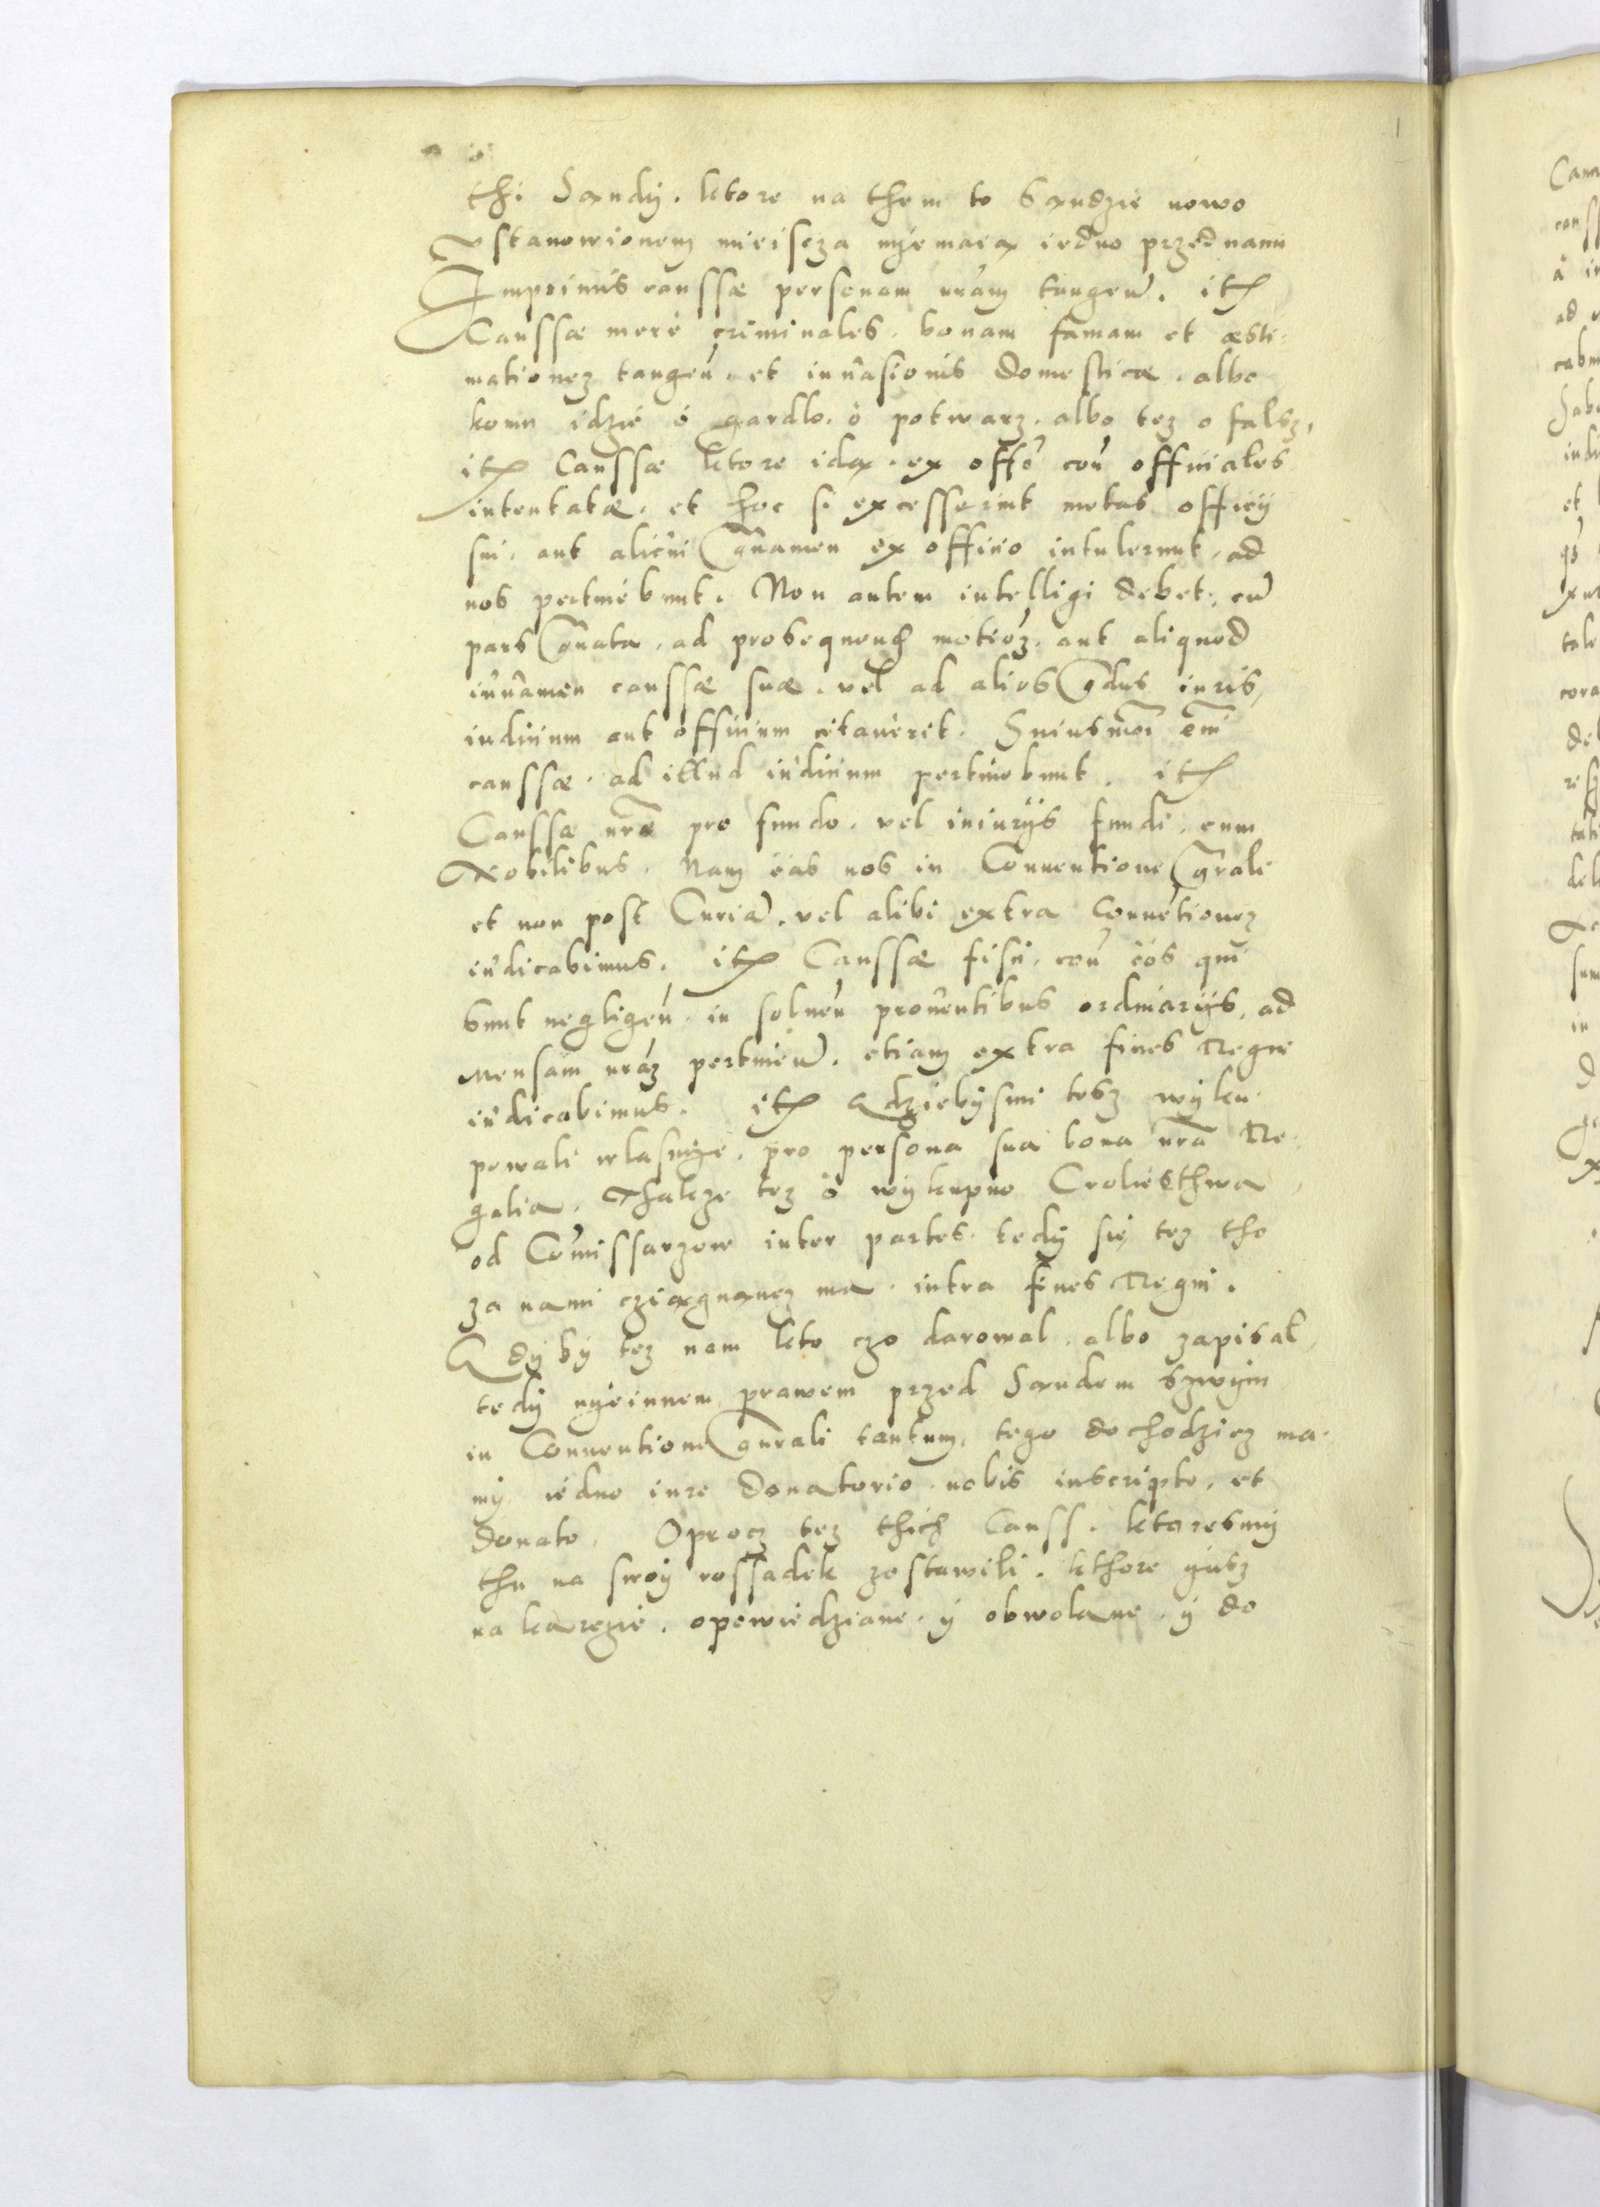 thi Sandÿ. ktore na them to Sandzie nowo
vstanowionem mieiscza nÿemaią iedno przednami
Imprimis caussæ personam nrãm tangeñ. itẽ
Caussæ merè criminales. bonam famam et æsti-
mationez tangeñ. et inuasionis domesticæ. albo
komu idzie ó gardlo. ò potwarz. albo tez o falsz,
itẽ Caussæ ktore idą. ex offõ coñ officiales
intentatæ. et hoc si excesserint metas officÿ
sui. aut alicui grãuamen ex officio intulerunt, ad
nos pertinebunt. Non autem intelligi debet. cũ
pars grãuata. ad prosequend motioẽz. aut aliquod
iuuamen caussæ suæ. vel ad alios grãdus iuris,
iudicium aut officium citauerit. Huiusmoĩ em̃
caussæ. ad illud iudicium pertinebunt. itẽ
Caussæ nrẽ pro fundo. vel iniurÿs fundi. cum
Nobilibus. Nam eas nos in Conuentione gñrali
et non post Curiã. vel alibi extra Conuẽtionez
iudicabimus. itẽ Caussæ fisci. coñ eos qui
sunt negligeñ. in solueñ prouentibus ordinarÿs, ad
Mensam nrãz pertineñ. etiam extra fines Regni
iudicabimus. itẽ Gdziebÿsmi tesz wÿku-
powali wlasnÿe. pro persona sua bona nrã Re-
galia. Thakze tez ò wÿkupno Croliesthwa
od Cõmissarzow inter partes. tedÿ sie tez tho
za nami cziągnąncz ma. intra fines Regni.
Gdÿbÿ tez nam kto czo darowal. albo zapisal,
tedÿ nÿeinnem prawem przed Sandem Szwÿm
in Conuentione gñrali tantum, tego dochodzicz ma-
mÿ iedno iure donatorio. nobis inscripto, et
donato. Oprocz tez thich Causs. ktoresmÿ
thu na swoÿ rossadek zostawili. kthore giusz
na karczie. opowiedziane. ÿ obwolane. ÿ do